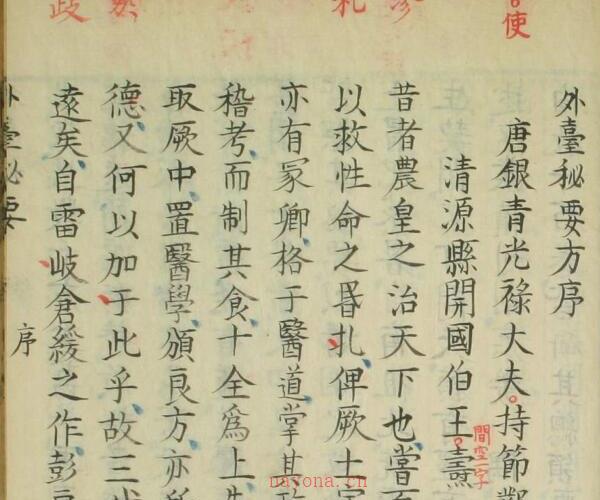 外臺秘要方序
唐銀青光祿大夫持節鄴
清源縣開國伯王燾
間空一字
昔者農皇之治天下也嘗百
以救性命之昬札俾厥土宇
亦有冢卿格于醫道掌其政
稽考而制其食十全為上失
取厥中置醫學頒良方亦所
德又何以加于此乎故三代
遠矣自雷岐倉緩之作彭
外臺秘要
序
使
札
岐
nayona.cn